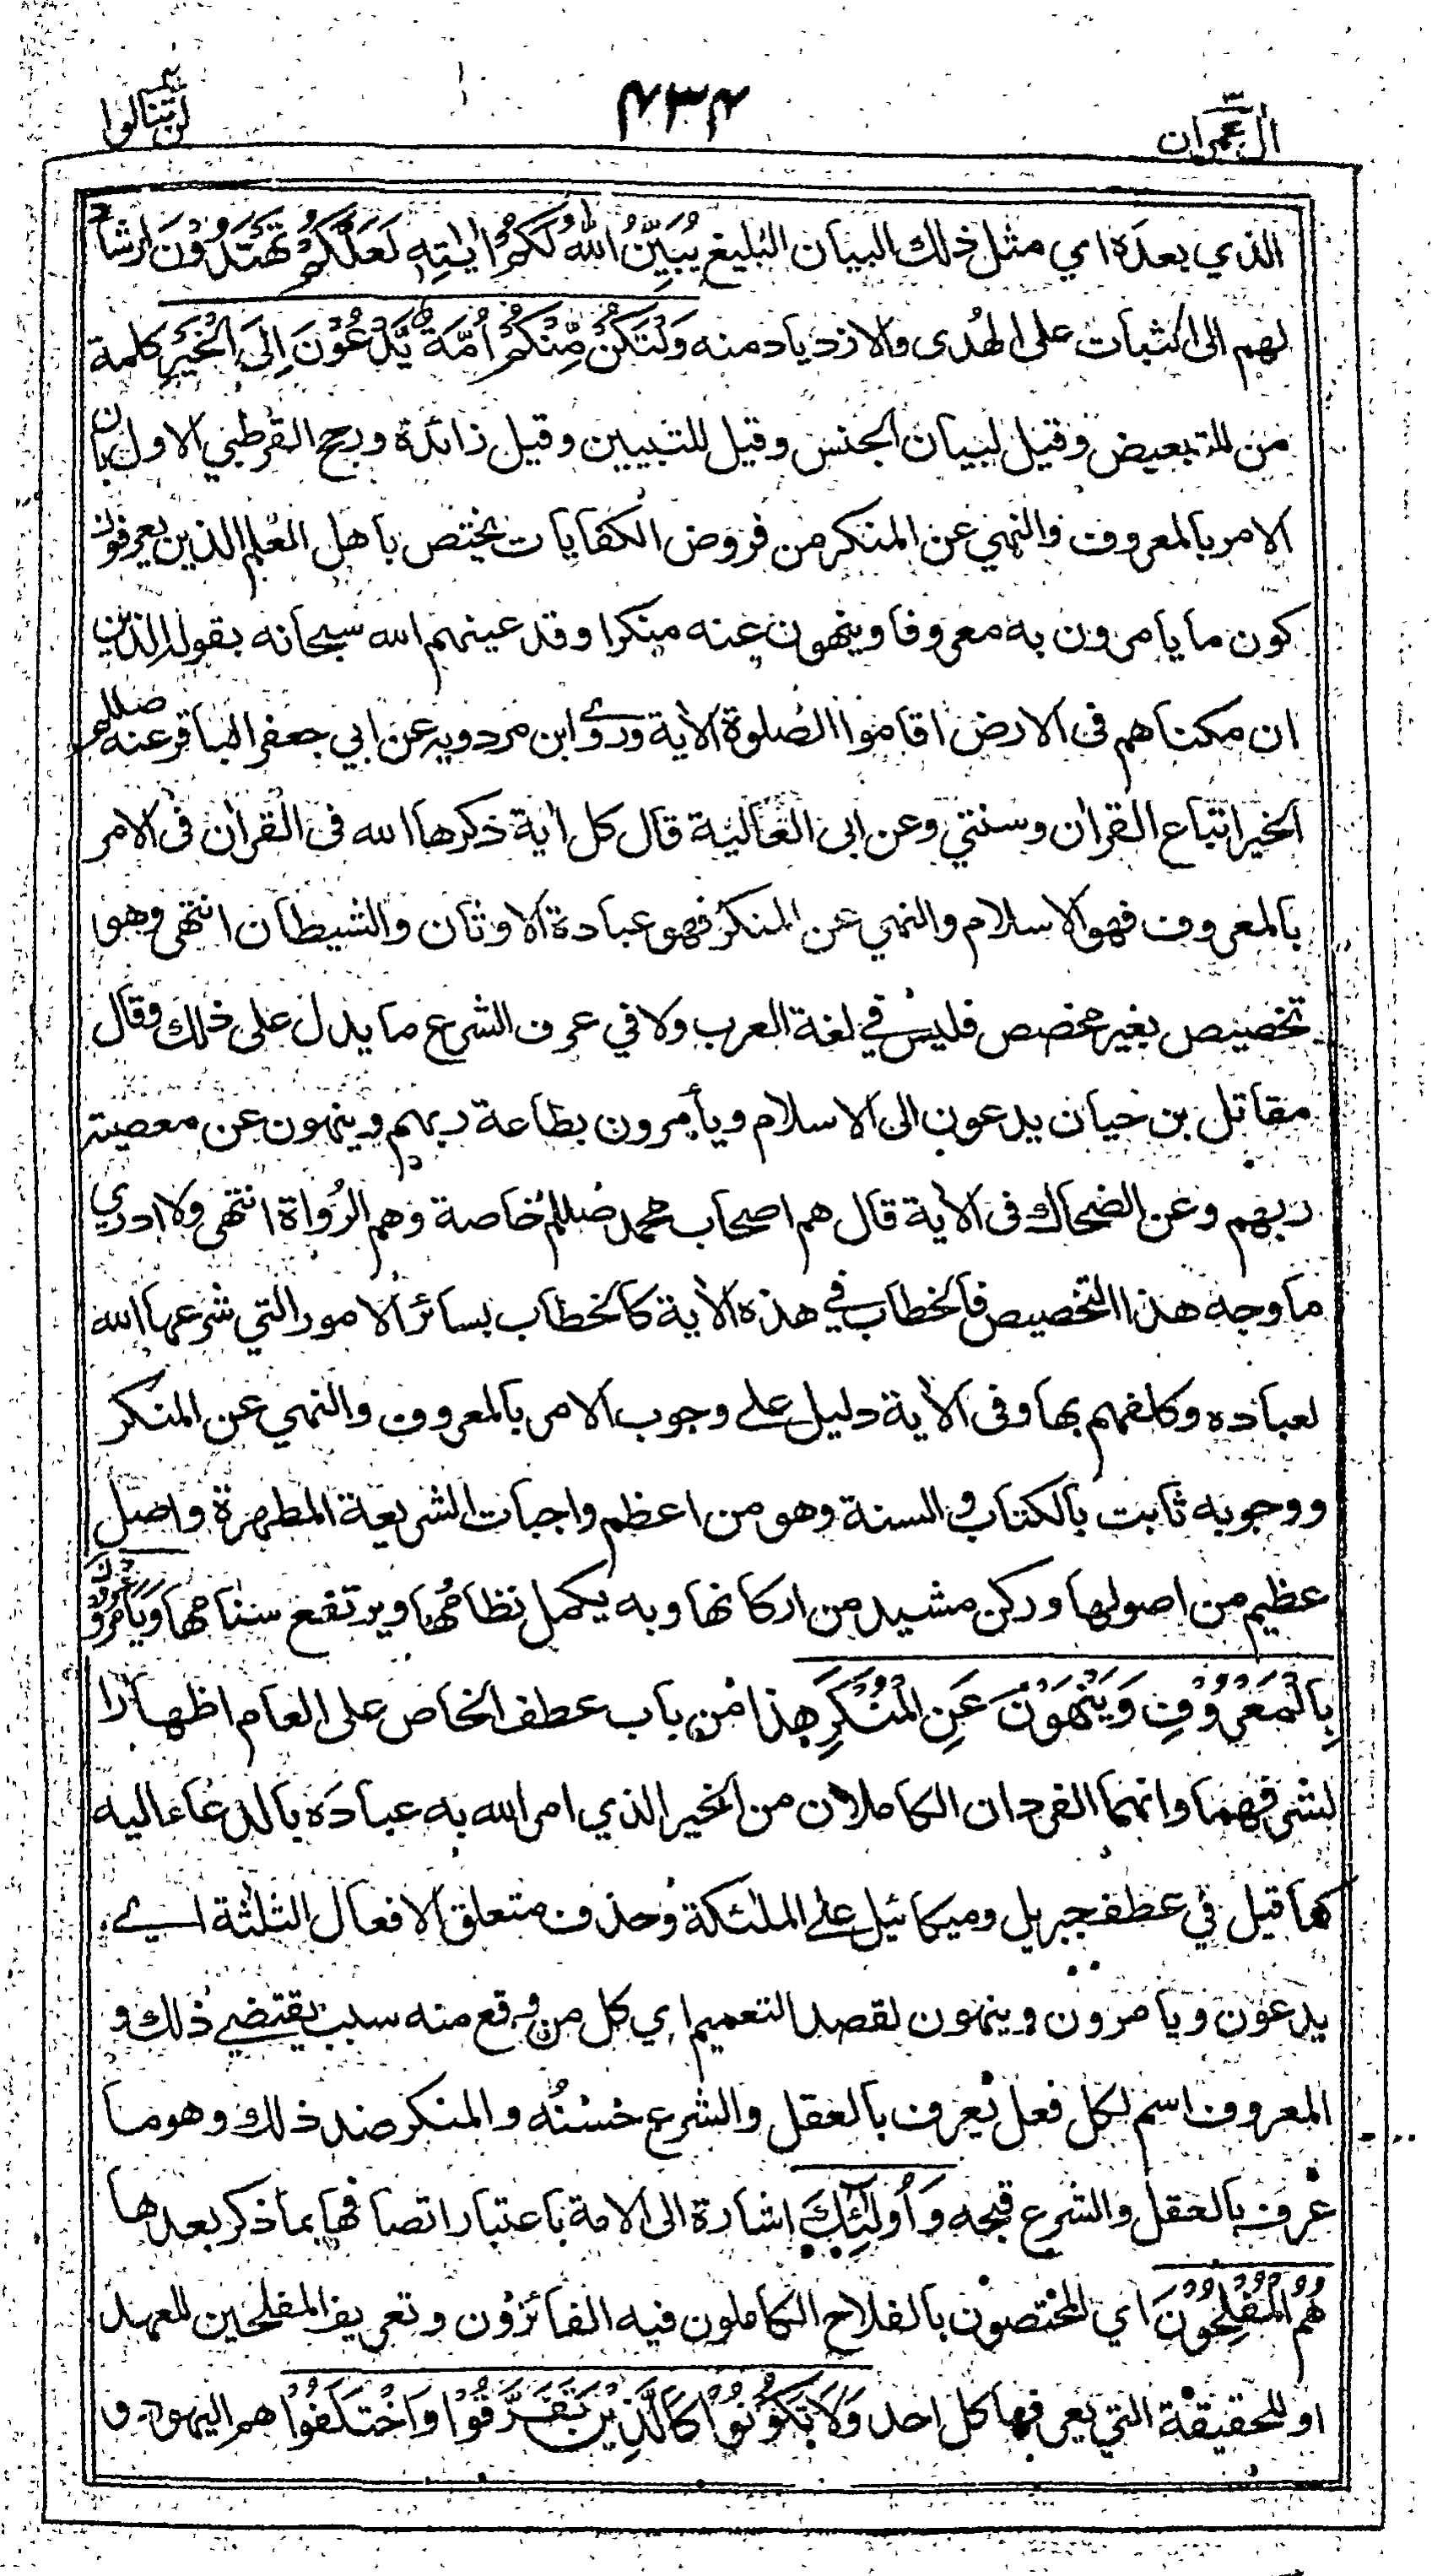 اٰل عمران ٣
٤٣٤
لن تنالوا ٤
الذي بعده اي مثل ذلك البيان البليغ يُبَيِّنُ اللّٰهُ لَكُمْ اٰيٰتِهٖ لَعَلَّكُمْ تَهْتَدُوْنَ ارشاد
لهم الى الثبات على الهُدى والازدياد منه وَلْتَكُنْ مِّنْكُمْ اُمَّةٌ يَّدْعُوْنَ اِلَى الْخَيْرِ كلمة
من للتبعيض وقيل لبيان الجنس وقيل للتبيين وقيل زائدة ورجح القرطبي الاول بان
الامر بالمعروف والنهي عن المنكر من فروض الكفايات يختص باهل العلم الذين يعرفون
كون ما يامرون به معروفا وينهون عنه منكرا وقد عينهم الله سبحانه بقوله الذين
ان مكناهم فى الارض اقاموا الصلوة الاٰية وروٰى ابن مردويه عن ابي جعفر الباقر عنه صللم
الخير اتباع القراٰن وسنتي وعن ابى العالية قال كل اٰية ذكرها الله فى القراٰن فى الامر
بالمعروف فهو الاسلام والنهي عن المنكر فهو عبادة الاوثان والشيطان انتهى وهو
تخصيص بغير مخصص فليس في لغة العرب ولا في عرف الشرع ما يدل على ذلك وقال
مقاتل بن حيان يدعون الى الاسلام ويأمرون بطاعة ربهم وينهون عن معصية
ربهم وعن الضحاك فى الاٰية قال هم اصحاب محمد صللم خاصة وهم الرُواة انتهى ولا ادري
ما وجه هذا التخصيص فالخطاب في هذه الاٰية كالخطاب بسائر الامور التي شرعها الله
لعباده وكلفهم بها وفى الاٰية دليل على وجوب الامر بالمعروف والنهي عن المنكر
ووجوبه ثابت بالكتاب والسنة وهو من اعظم واجبات الشريعة المطهرة واصل
عظيم من اصولها وركن مشيد من اركانها وبه يكمل نظامُها ويرتفع سنامها وَيَاْمُرُوْنَ
بِالْمَعْرُوْفِ وَيَنْهَوْنَ عَنِ الْمُنْكَرِ هذا من باب عطف الخاص على العام اظهارا
لشرفهما وانهما الفردان الكاملان من الخير الذي امر الله به عباده بالدعاء اليه
كما قيل في عطف جبريل وميكائيل على الملٰئكة وحذف متعلق الافعال الثلٰثة اي
يدعون ويامرون وينهون لقصد التعميم اي كل من وقع منه سبب يقتضي ذلك و
المعروف اسم لكل فعل يُعرف بالعقل والشرع حُسْنُه والمنكر ضد ذلك وهو ما
عُرف بالعقل والشرع قبحه وَاُولٰٓئِكَ اشارة الى الامة باعتبار اتصافها بما ذكر بعدها
هُمُ الْمُفْلِحُوْنَ اي المختصون بالفلاح الكاملون فيه الفائزون وتعريف المفلحين للعهد
او للحقيقة التي يعرفها كل احد وَلَا تَكُوْنُوْا كَالَّذِيْنَ تَفَرَّقُوْا وَاخْتَلَفُوْا هم اليهود و